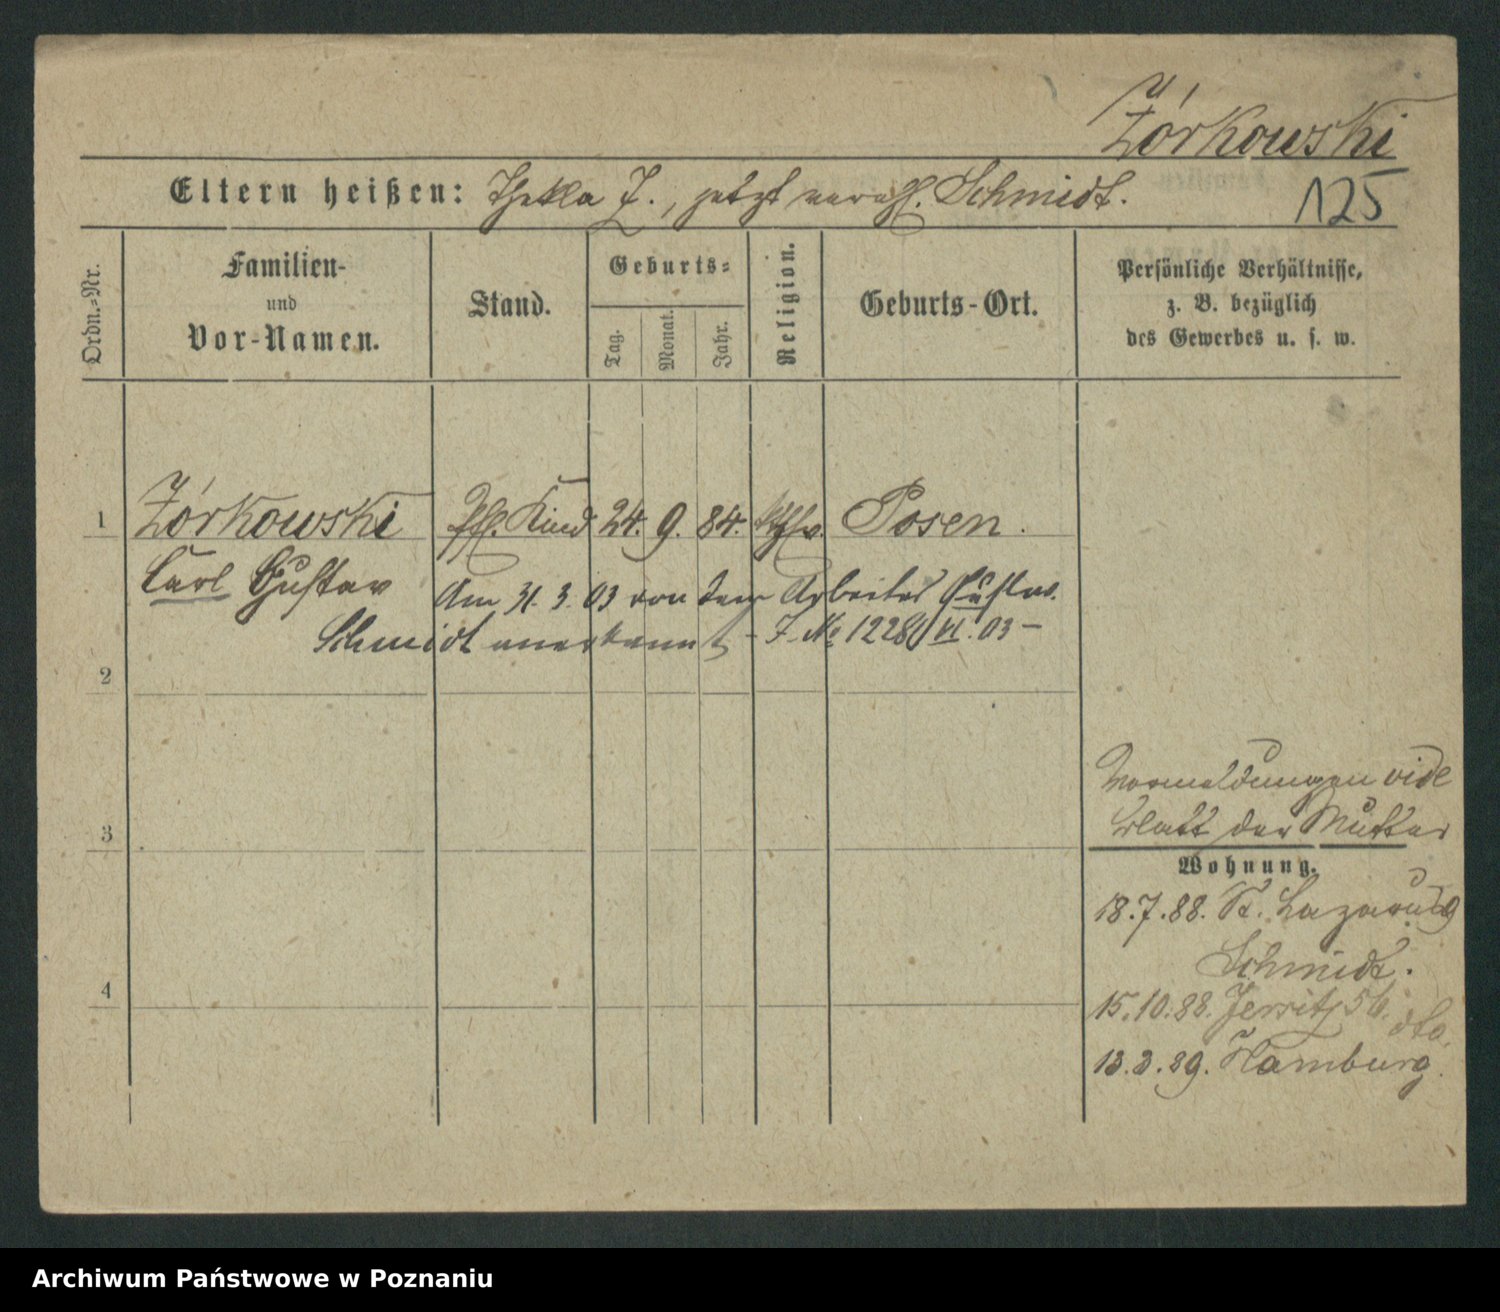 Żórkowski
Eltern heißen: Thekla Z., jetzt verehl. Schmidt.
125
Ordn.=Nr.
Familien-
und
Vor-Namen.
Stand.
Geburts=
Tag.
Monat.
Jahr.
Religion.
Geburts-Ort.
Persönliche Verhältnisse,
z. B. bezüglich
des Gewerbes u. s. w.
1 Żórkowski Pfl. Kind 24. 9. 84. Posen.
Carl Gustav
Am 31. 3. 03 von dem Arbeiter Gustav
Schmidt anerkannt - J. No 12280 VI. 03 -
2
3
4
Vormeldungen vide
Blatt der Mutter
Wohnung.
18.7.88. St. Lazarus
Schmidt.
15.10.88. Jersitz 56. dto.
13.3.89. Hamburg.
Archiwum Państwowe w Poznaniu